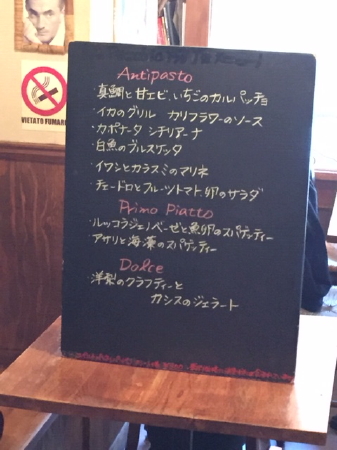 VIETATO FUMARE
Antipasto
・真鯛と甘エビ、いちごのカルパッチョ
・イカのグリル カリフラワーのソース
・カポナータ シチリアーナ
・白魚のブルスケッタ
・イワシとカラスミのマリネ
・チェードロとフルーツトマト、卵のサラダ
Primo Piatto
・ルッコラジェノベーゼと魚卵のスパゲッティー
・アサリと海藻のスパゲッティー
Dolce
・洋梨のクラフティーと
カシスのジェラート